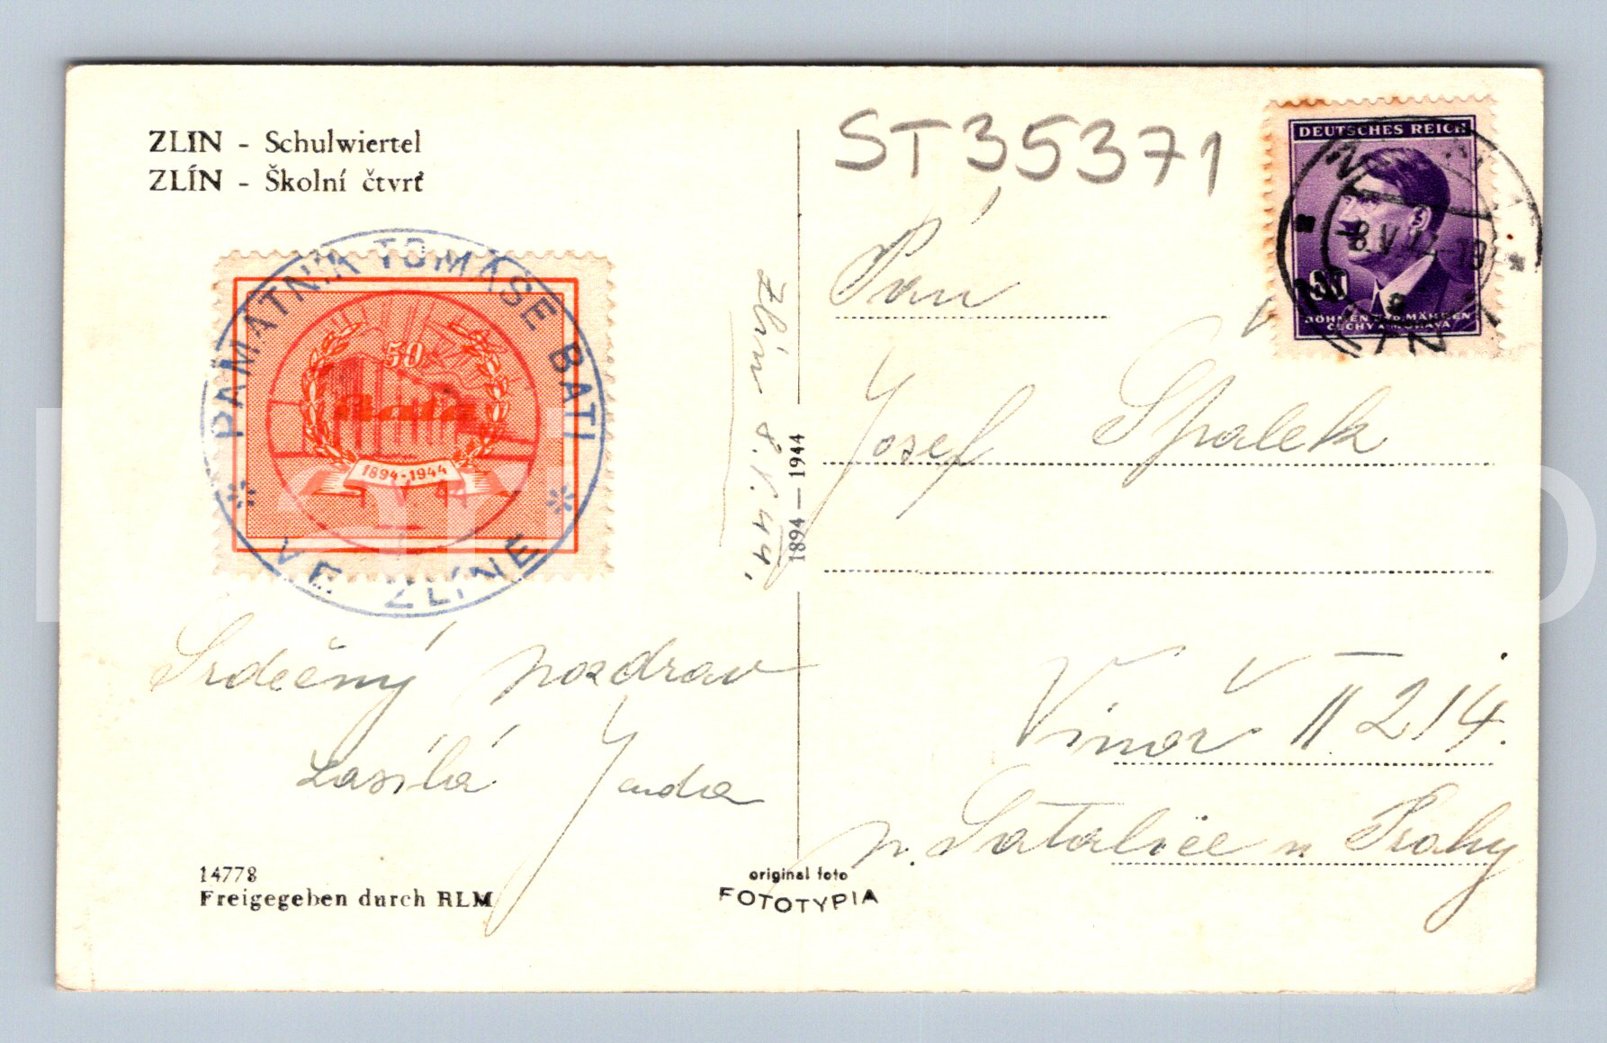 ZLIN - Schulwiertel
ZLÍN - Školní čtvrť
ST35371
DEUTSCHES REICH
8.V.44-19
60
BÖHMEN UND MÄHREN
ČECHY A MORAVA
ZLÍN
PAMÁTNÍK TOMÁŠE BATI
VE ZLÍNĚ
50
Baťa
1894-1944
Zlín 8.V.44,
1894 — 1944
Pán
Josef Špalek
Vinoř II 214.
p. Satalice u Prahy
Srdečný pozdrav
zasílá Jenda
14778
Freigegeben durch RLM
original foto
FOTOTYPIA